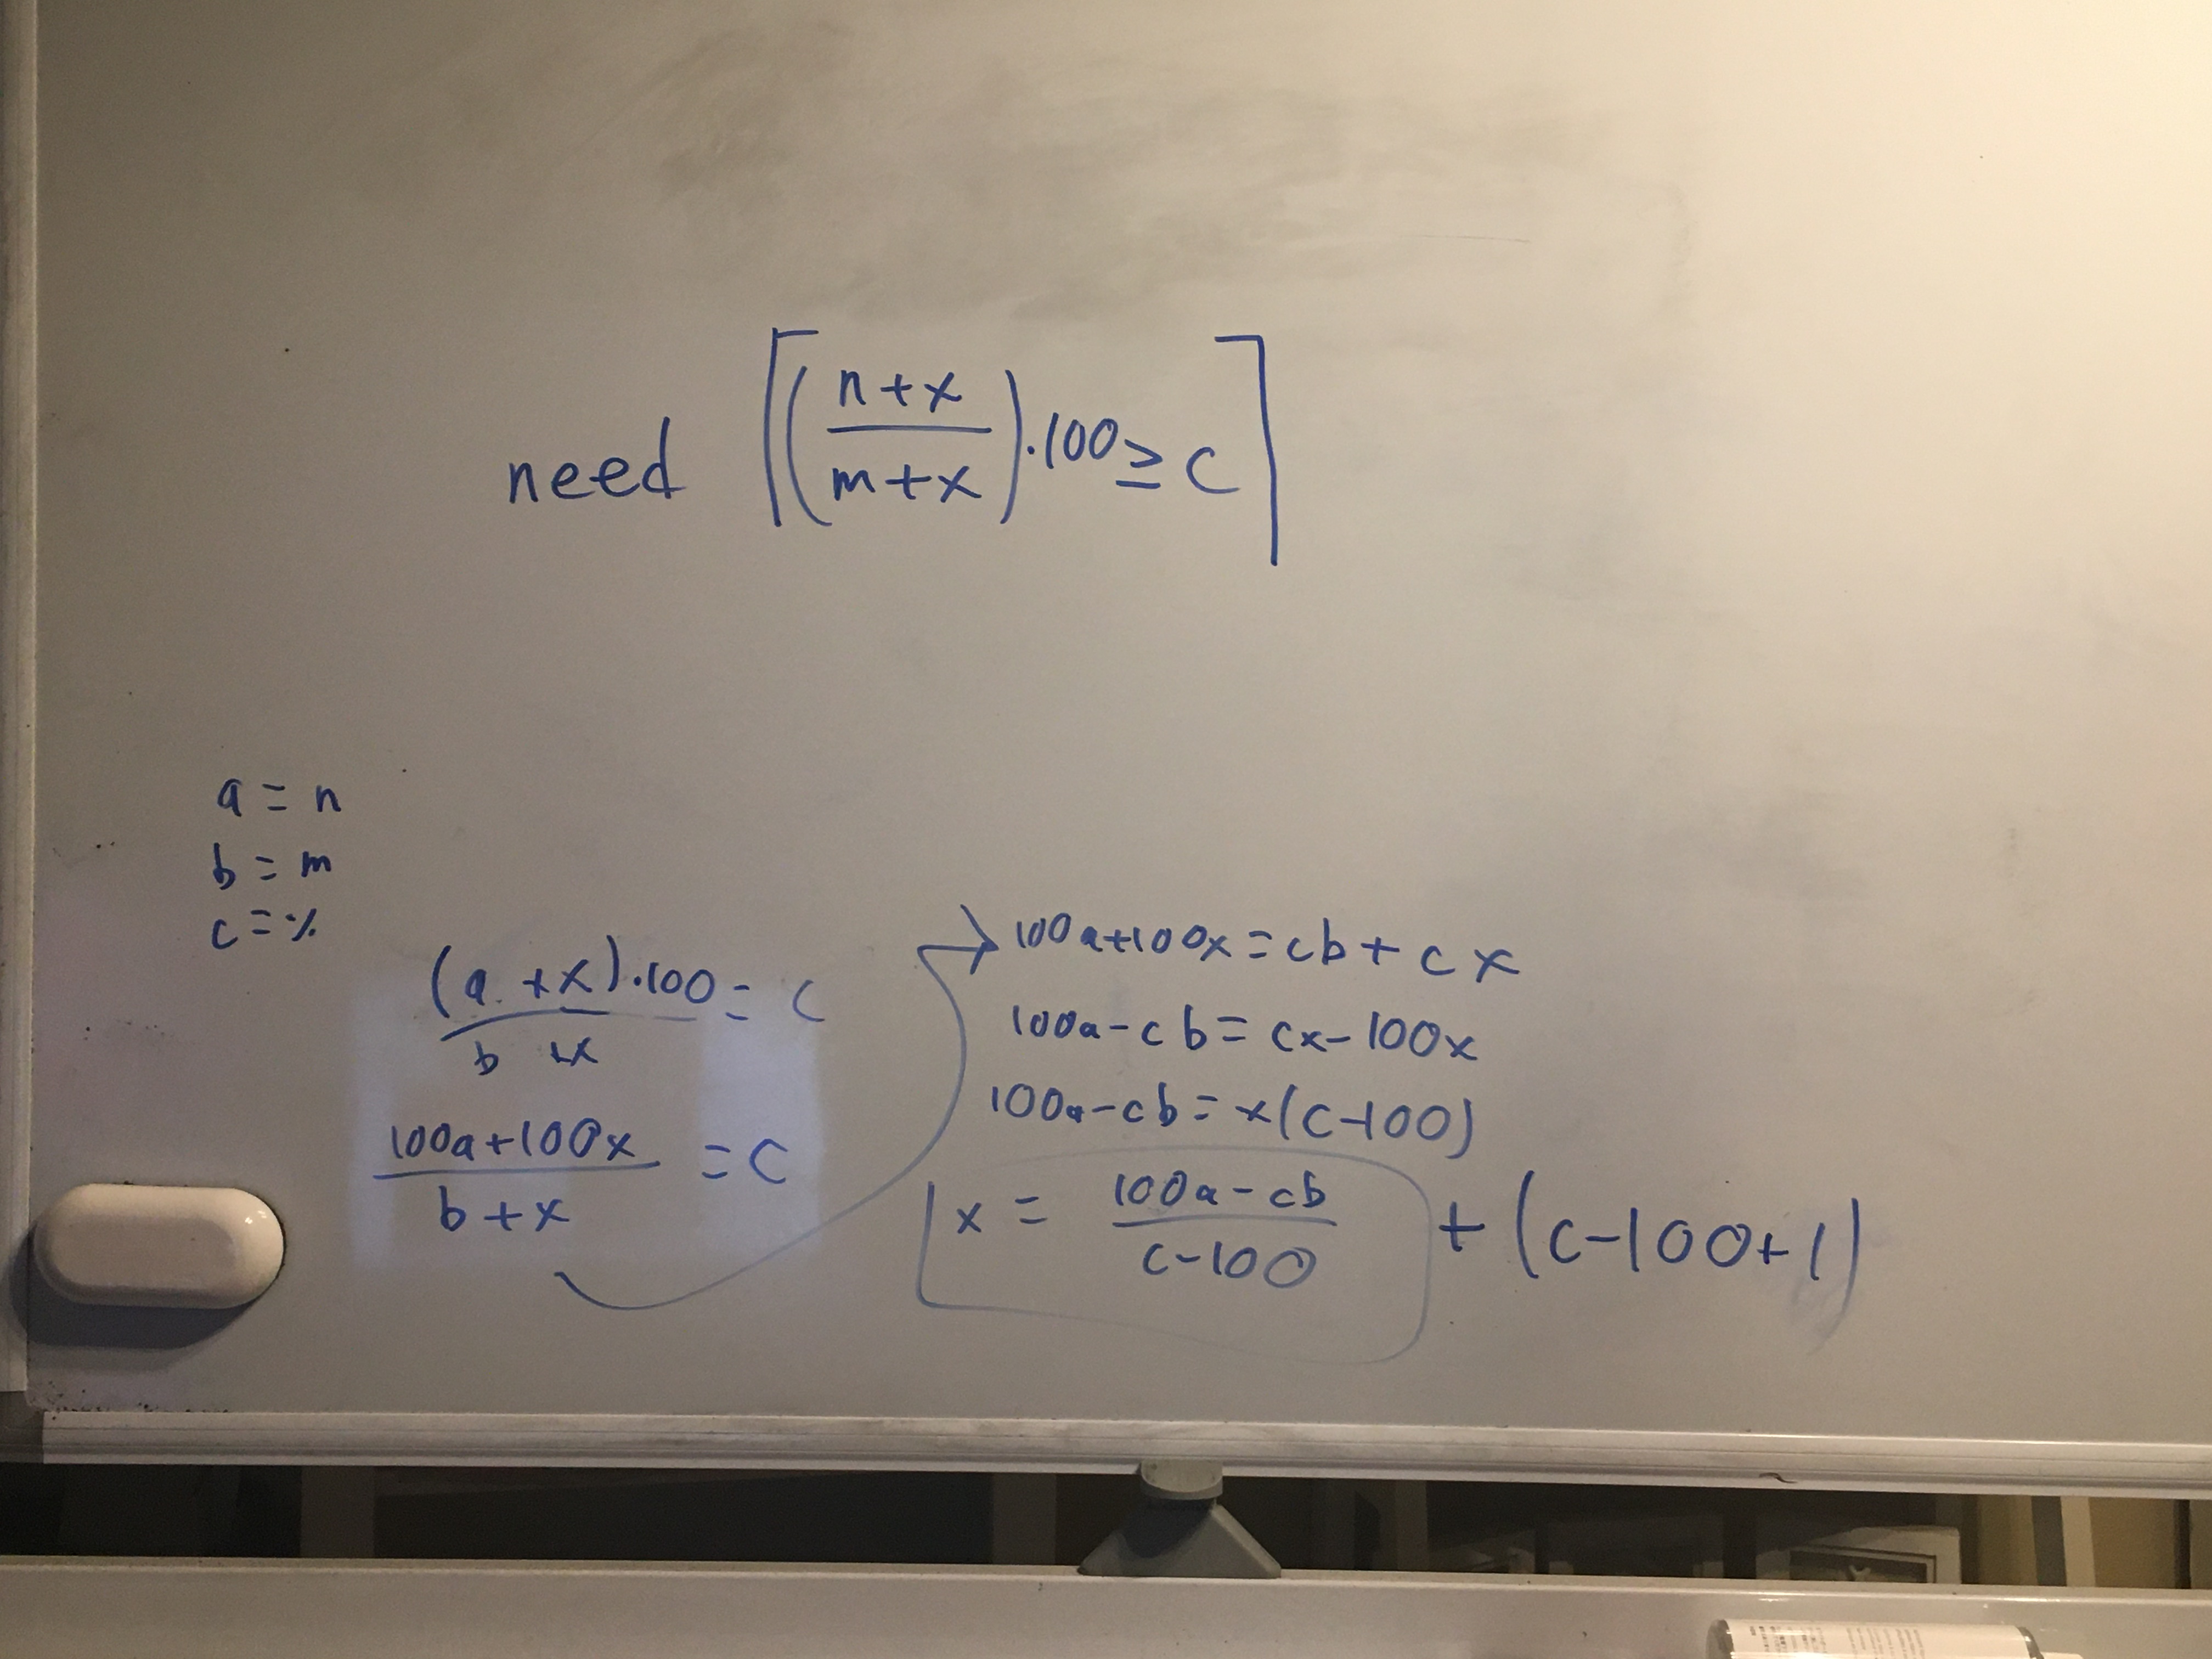 need ⌈((n+x)/(m+x))·100 ≥ c⌉
a = n
b = m
c = %
(a+x)·100 / b+x = c
100a+100x / b+x = c
→ 100a+100x = cb+cx
100a-cb = cx-100x
100a-cb = x(c-100)
x = 100a-cb / c-100 + (c-100+1)